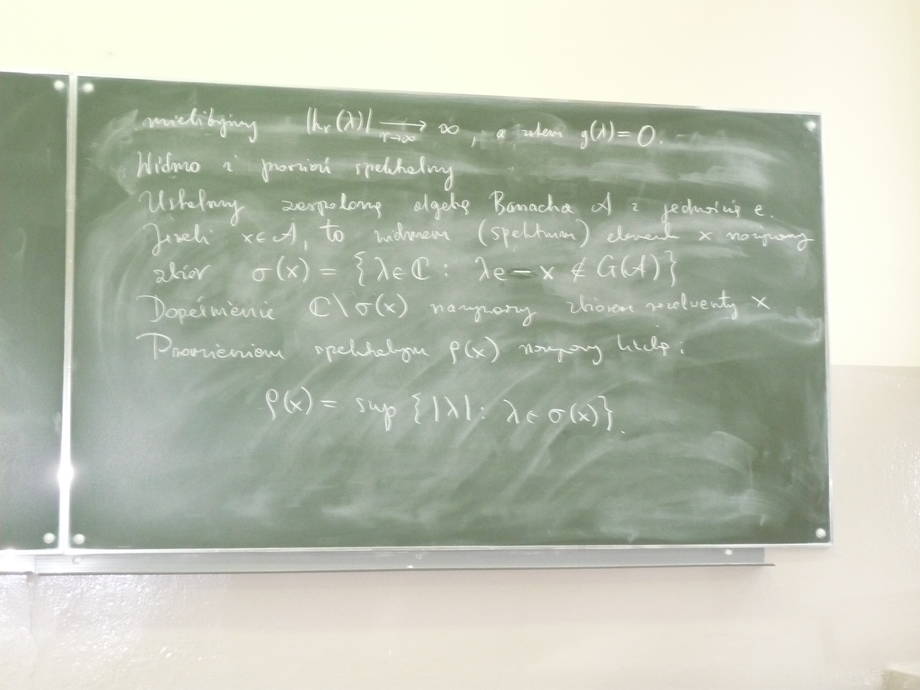 mielibyśmy |h_r(λ)| ⟶_{r→∞} ∞, a zatem g(λ) = 0.
Widmo i promień spektralny
Ustalmy zespoloną algebrę Banacha A z jedynką e.
Jeżeli x ∈ A, to widmem (spektrum) elementu x nazywamy
zbiór σ(x) = {λ ∈ ℂ : λe − x ∉ G(A)}
Dopełnienie ℂ \ σ(x) nazywamy zbiorem rezolwenty x
Promieniem spektralnym ρ(x) nazywamy liczbę:
ρ(x) = sup {|λ| : λ ∈ σ(x)}.